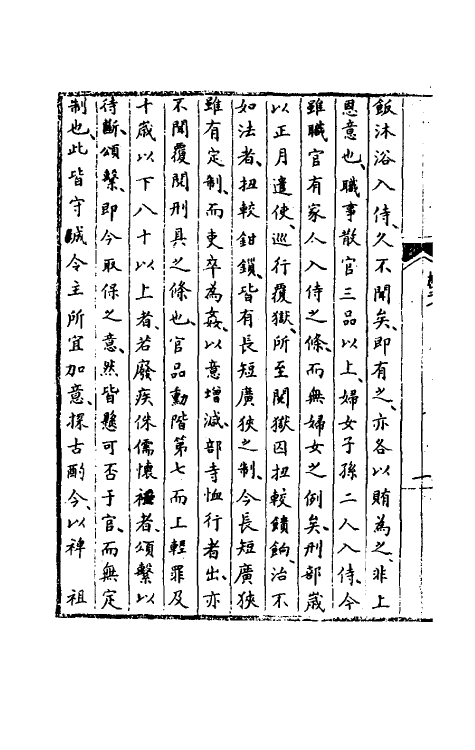 飯沐浴入侍、久不聞矣、即有之、亦各以賄為之、非上
恩意也、職事散官三品以上、婦女子孫二人入侍、今
雖職官有家人入侍之條、而無婦女之例矣、刑部歲
以正月遣使、巡行覆獄、所至閱獄囚扭較饋餉、治不
如法者、扭較鉗鎖、皆有長短廣狹之制、今長短廣狹
雖有定制、而吏卒為姦、以意增減、部寺恤行者出、亦
不聞覆閱刑具之條也、官品勳階第七而上輕罪及
十歲以下八十以上者、若廢疾侏儒懷者、頌繫以
待斷、頌繫、即今取保之意、然皆懸可否于官、而無定
制也、此皆守誠令主所宜加意、探古酌今、以裨 祖